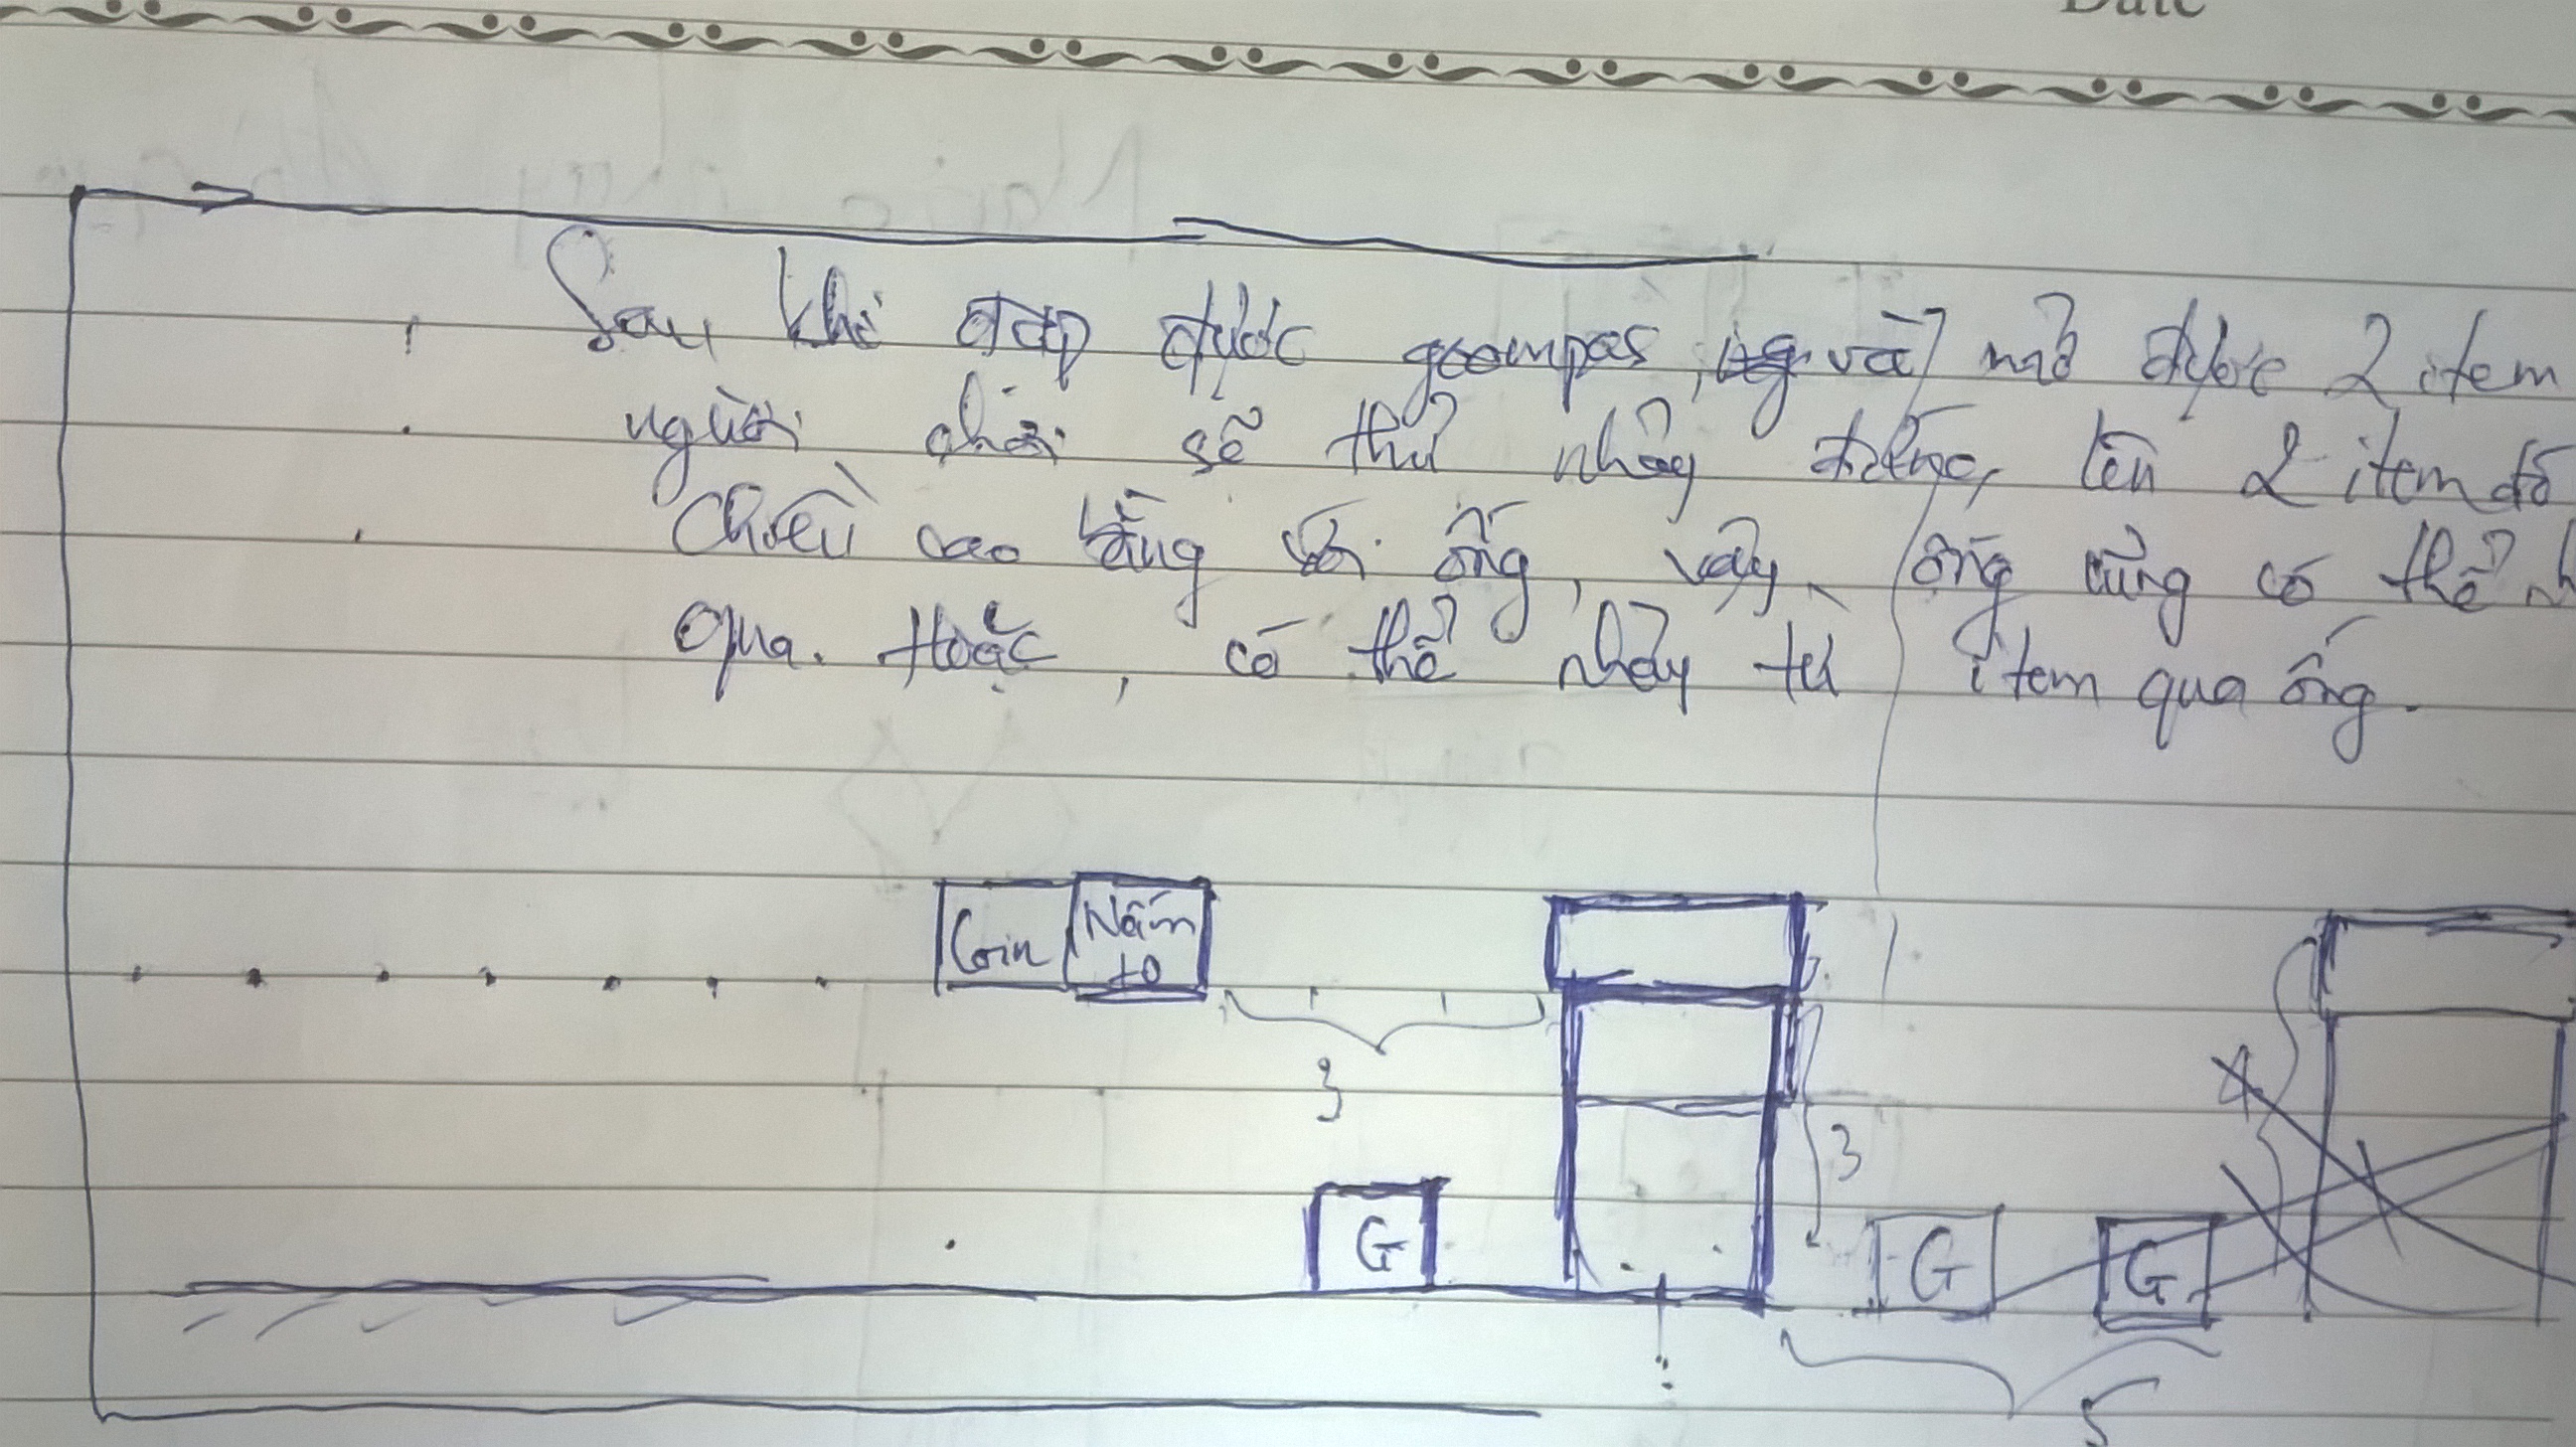 Date
Sau khi đạp được goompas, và mở được 2 item
người chơi sẽ thử nhảy được, lên 2 item đó
Chiều cao bằng với ống, vậy ống cũng có thể nh
qua. Hoặc, có thể nhảy từ item qua ống.
Coin Nấm to
3
4
3
G G G
5